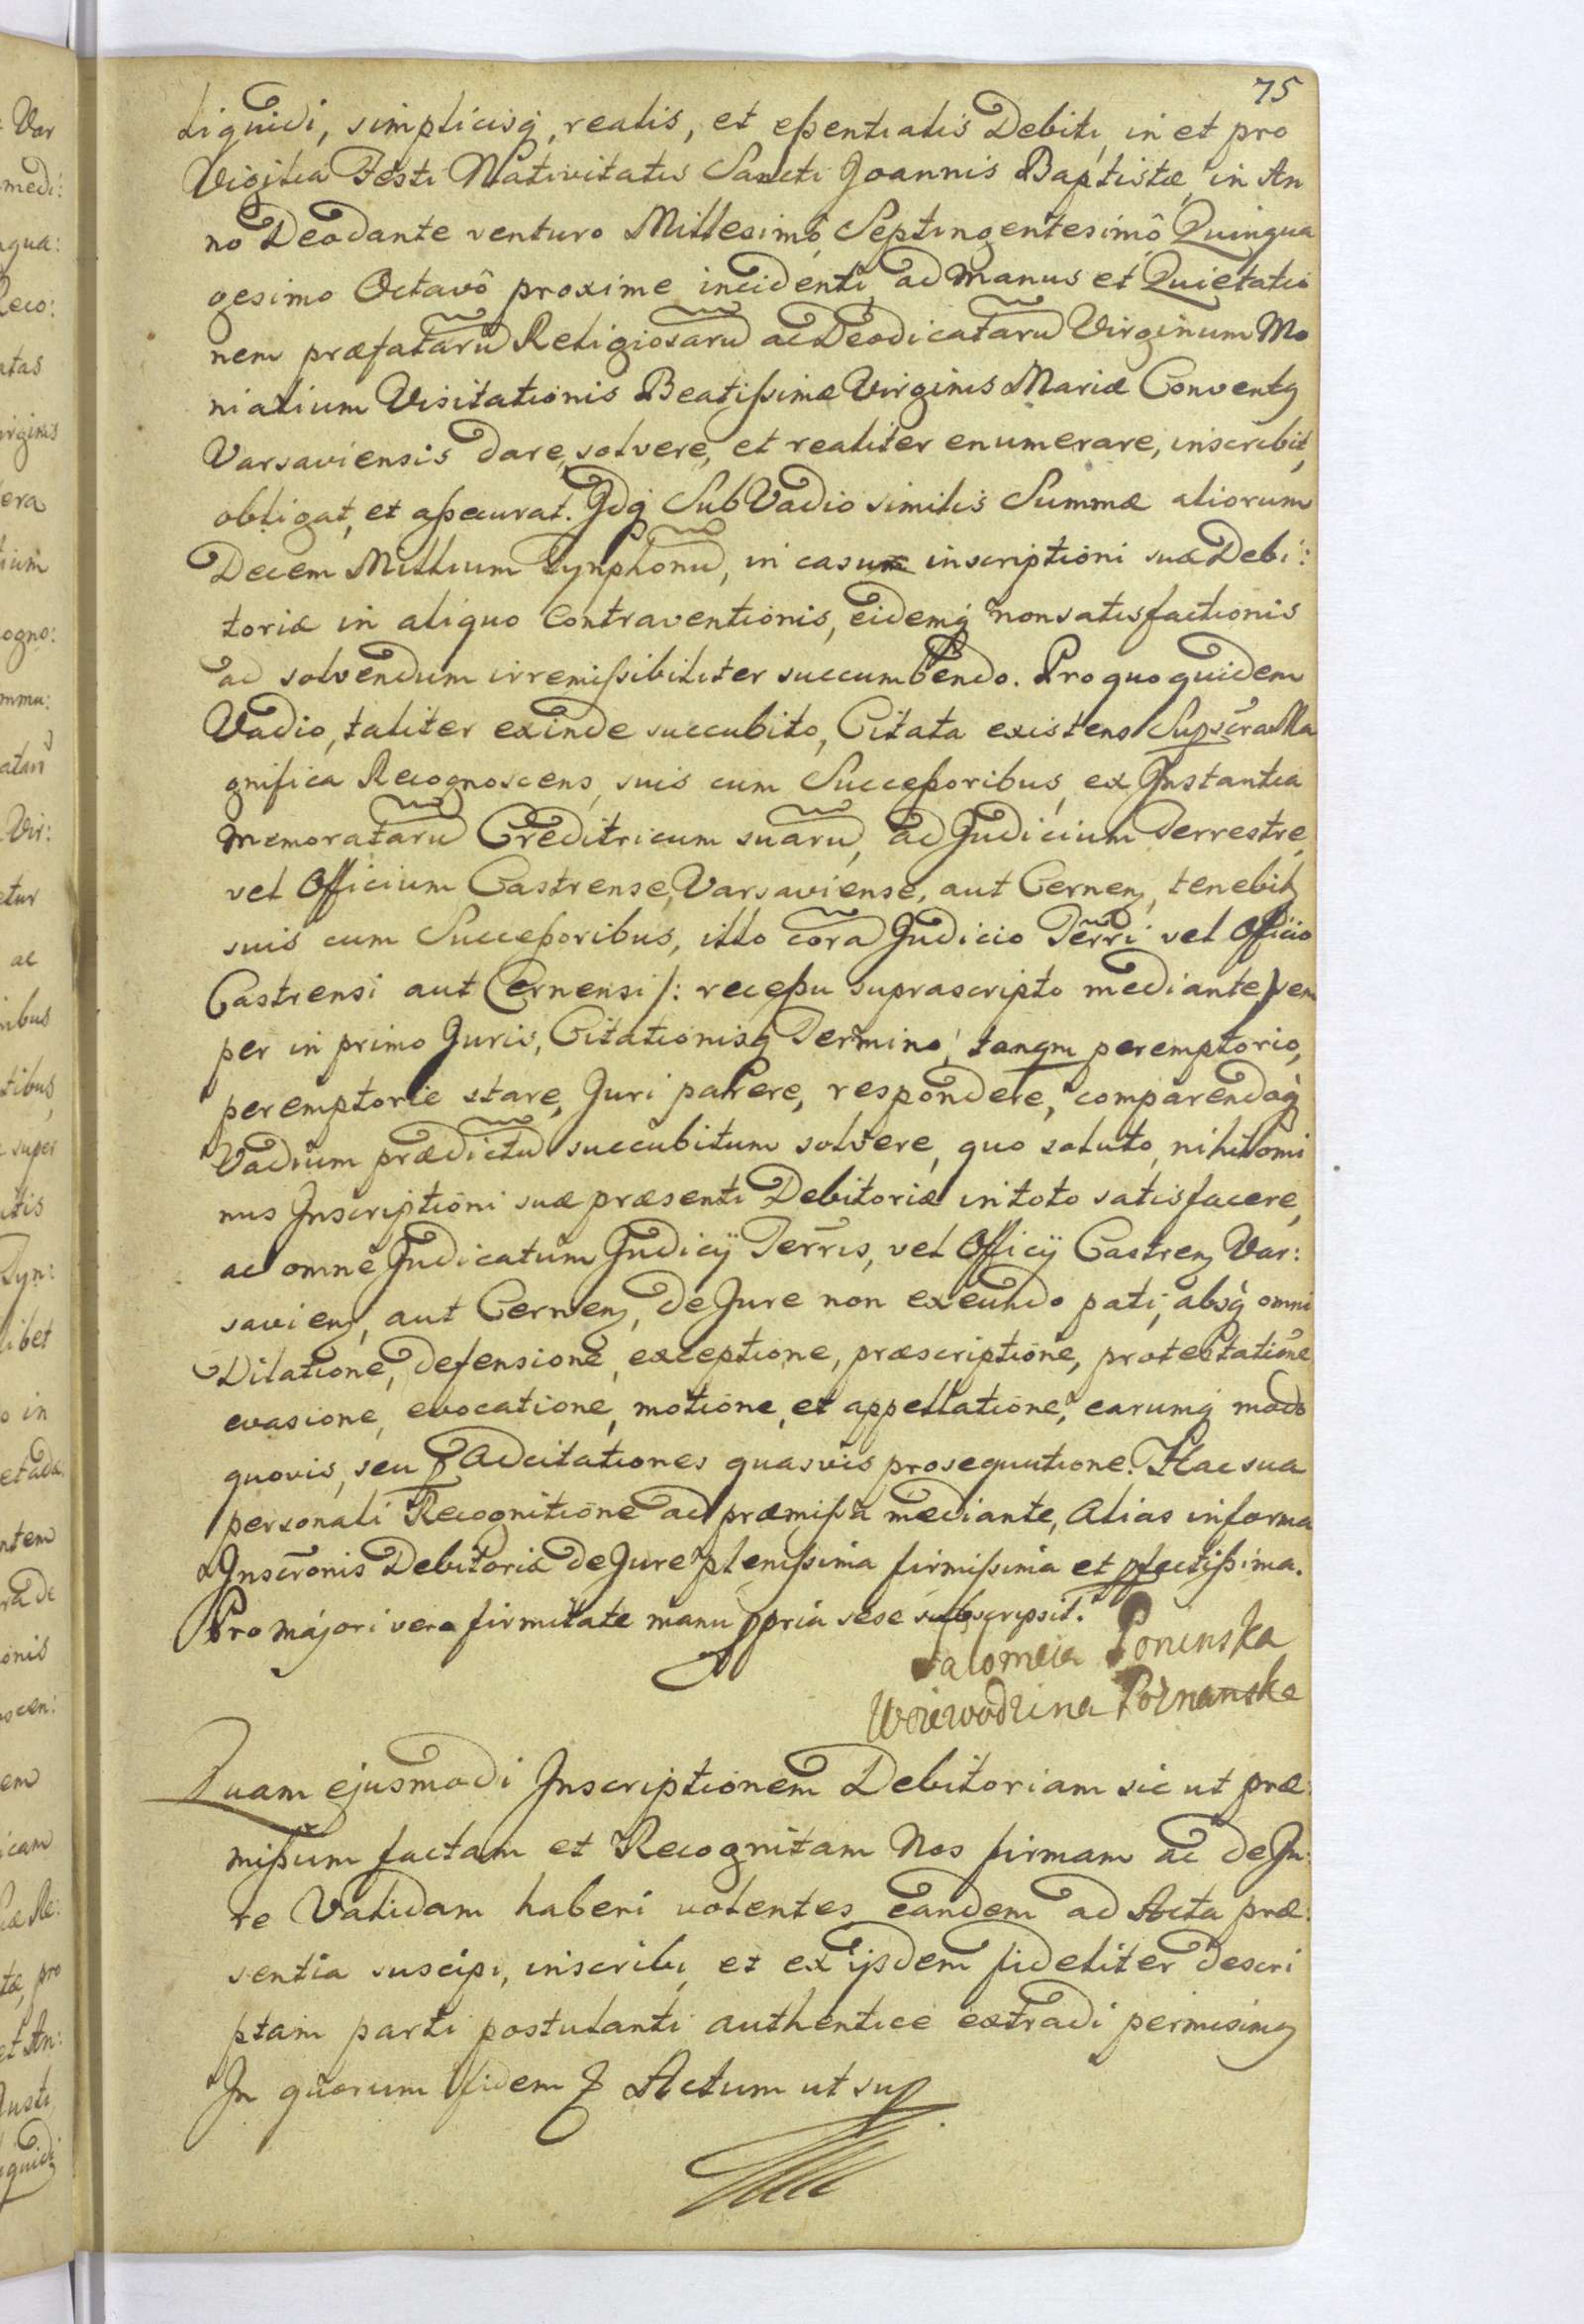 75
Liquidi, simplicisq, realis, et eßentialis Debiti, in et pro
Vigilia Festi Nativitatis Sancti Joannis Baptistæ, in An
no Deodante venturo Millesimô Septingentesimô Quinqua
gesimo Octavô proxime incidenti, ad Manus et Quietatio
nem præfatarũ Religiosarũ ac Deodicatarũ Virginum Mo
nialium Visitationis Beatißimæ Virginis Mariæ Conventq
Varsaviensis dare, solvere, et realiter enumerare, inscribit,
obligat, et aßecurat. Idq Sub Vadio similis Summæ aliorum
Decem Millium Tynphonũ, in casum inscriptioni suæ Debi:
toriæ in aliquo Contraventionis, eidemq non satisfactionis
ad solvendum irremißibiliter succumbendo. Pro quo quidem
Vadio, taliter exinde succubito, Citata existens Supscra Ma
gnifica Recognoscens, suis cum Succeßoribus, ex Instantia
Memoratarũ Creditricum suarũ, ad Judicium Terrestre,
vel Officium Castrense, Varsaviense, aut Cernen, tenebit
suis cum Succeßoribus, illo corã Judicio Terri vel Officio
Castrensi aut Cernensi /: receßu suprascripto mediante / sem
per in primo Juris, Citationisq Termino, tanqm peremptorio,
peremptorie stare, Juri parere, respondere, comparendoq
Vadium prædictũ succubitum solvere, quo soluto, nihilomi
nus Inscriptioni suæ præsenti Debitoriæ in toto satisfacere,
ac omne Judicatum Judicij Terris, vel Officij Castren Var:
savien, aut Cernen, de Jure non exeundo pati, absq omni
Dilatione, defensione, exceptione, præscriptione, protestatione
evasione, evocatione, motione, et appellatione, earumq modo
quovis, seu p Adcitationes quasvis prosequutione. Hac sua
personali Recognitione ad præmißa mediante, Alias in forma
Inscronis Debitoria de Jure plenißima firmißima et pfectißima.
Pro majori vero firmitate manu ppria sese subscripsit.
Salomeia Ponińska
Woiewodzina Poznanska
Quam ejusmodi Inscriptionem Debitoriam sic ut præ:
mißum factam et Recognitam Nos firmam ac de Ju:
re Validam haberi volentes, eandem ad Acta præ:
sentia suscipi, inscribi, et ex ijsdem fideliter descri
ptam parti postulanti authentice extradi permisimq
In quorum fidem Actum ut sup